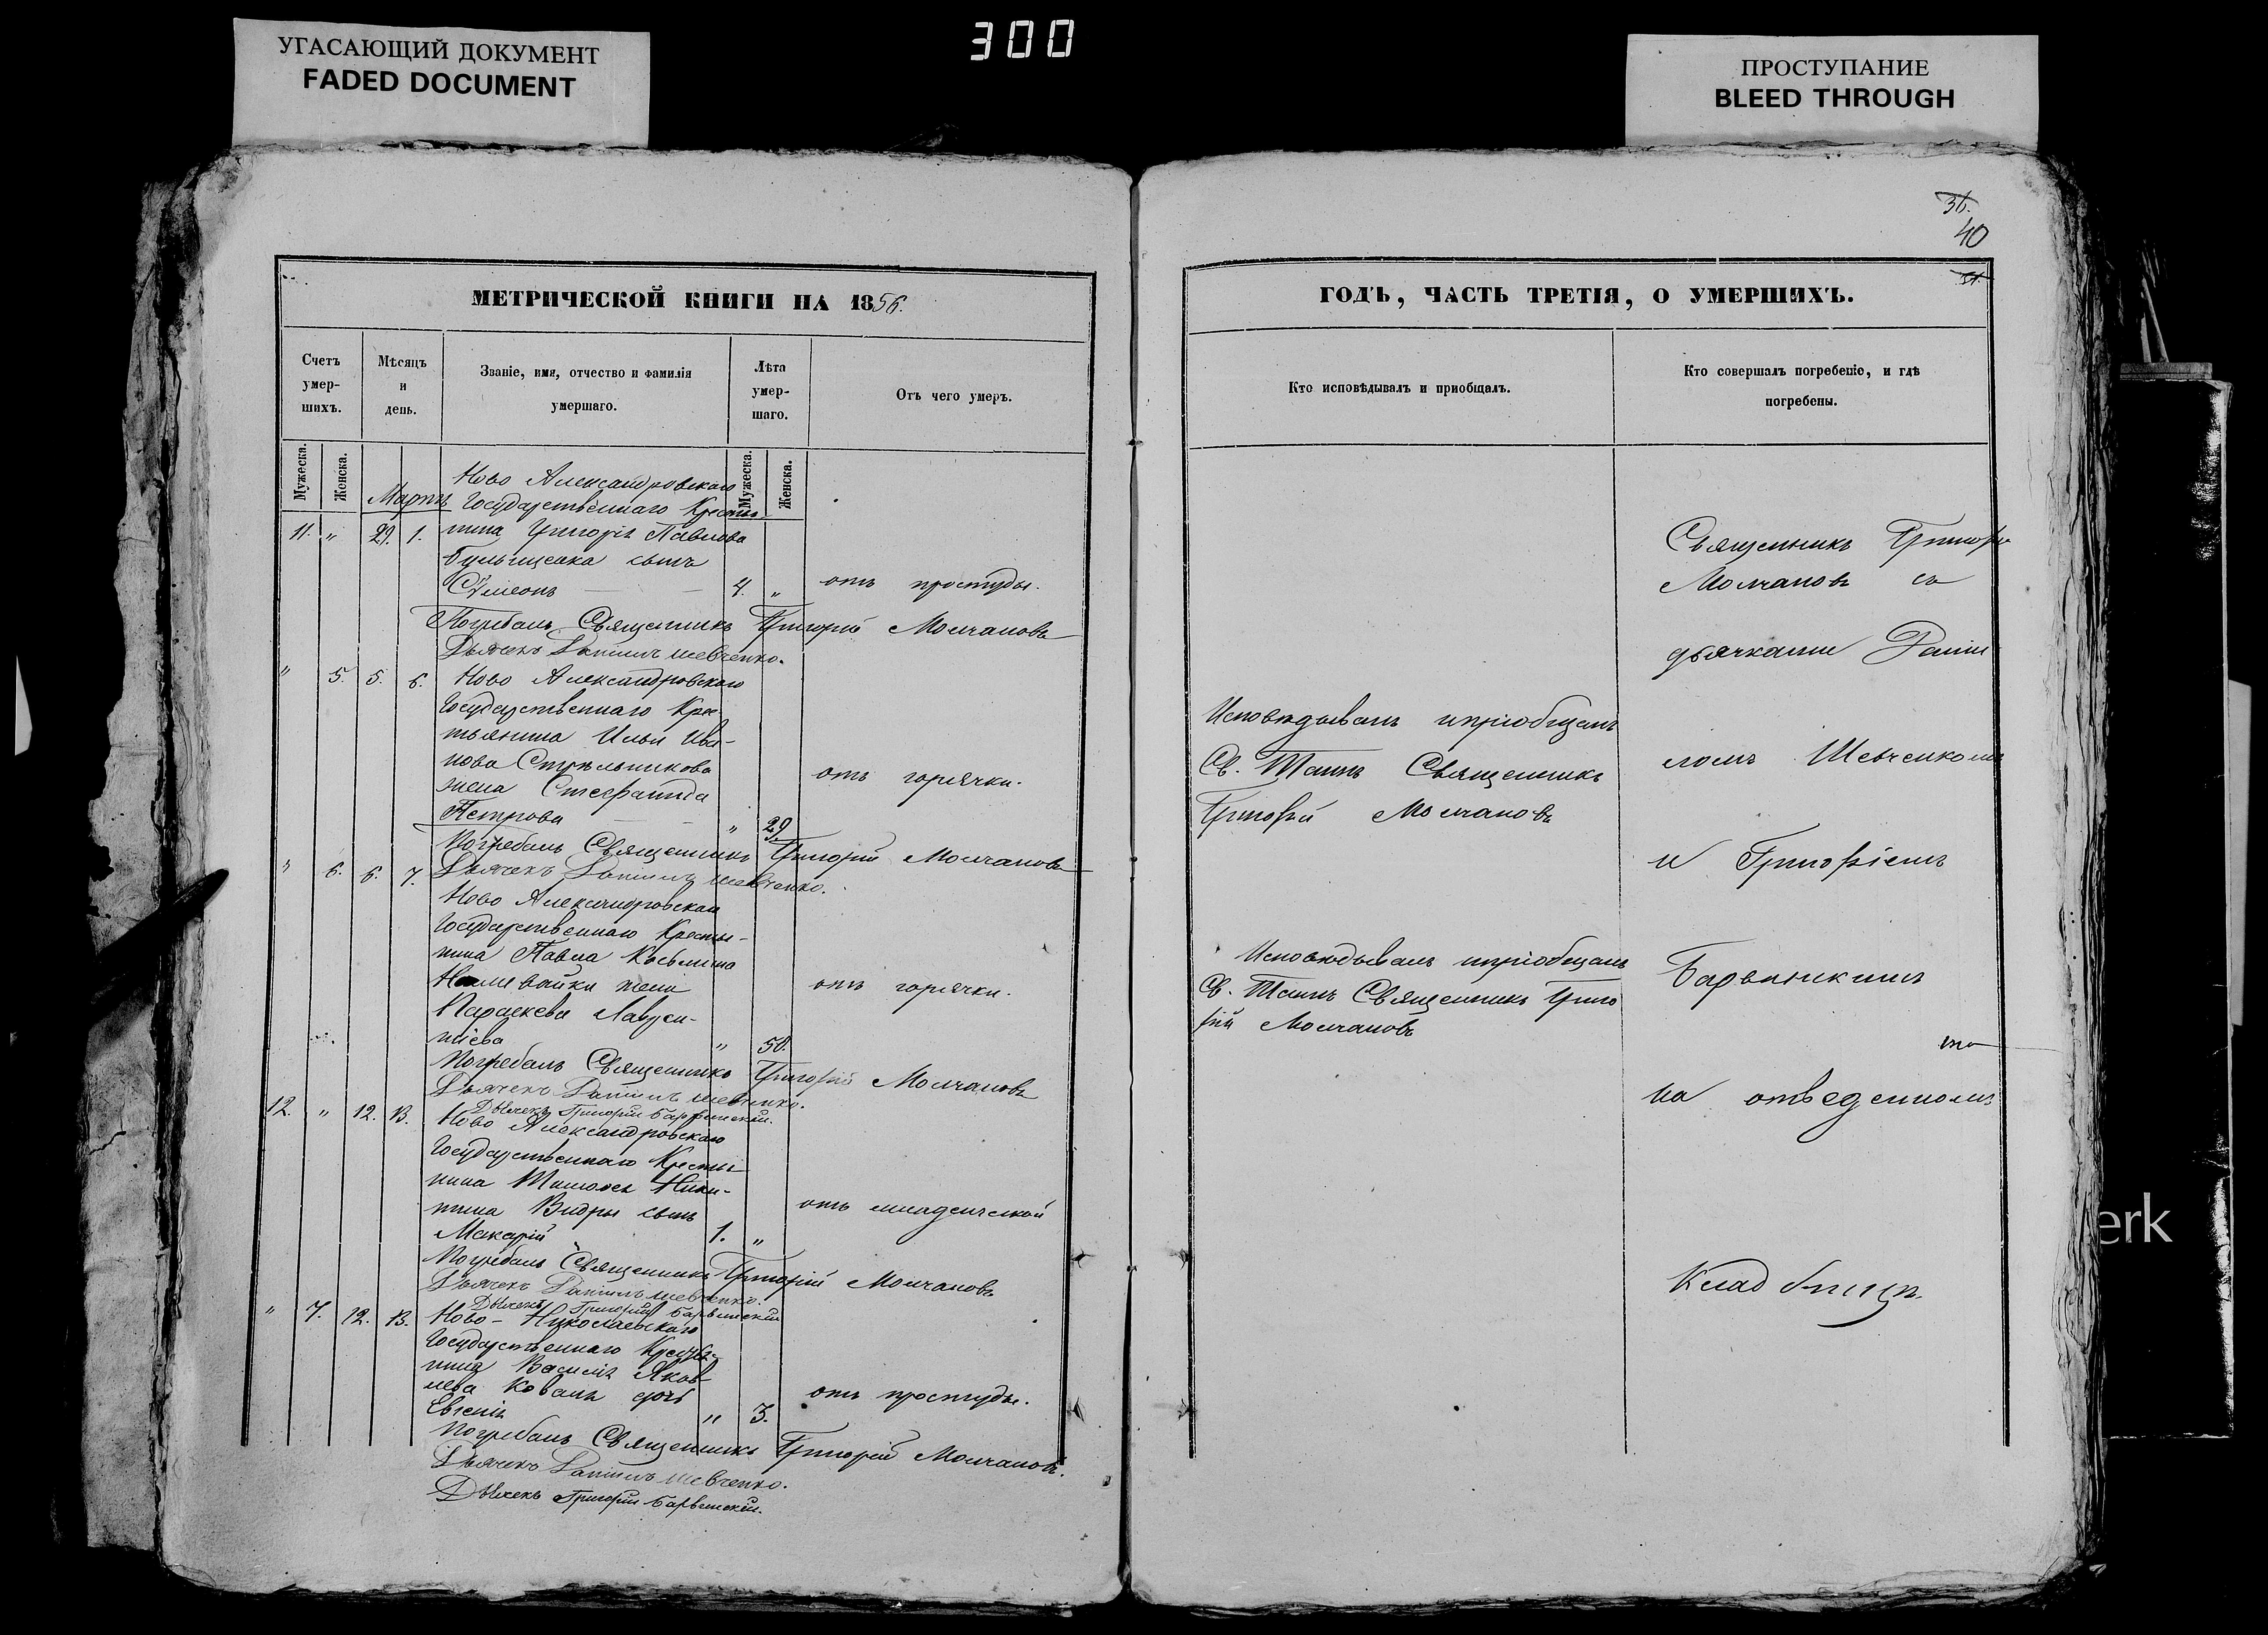 300
УГАСАЮЩИЙ ДОКУМЕНТ
FADED DOCUMENT
ПРОСТУПАНИЕ
BLEED THROUGH
36.
40
МЕТРИЧЕСКОЙ КНИГИ НА 1856.
Счетъ умер-шихъ.
Мѣсяцъ и день.
Званіе, имя, отчество и фамилія умершаго.
Лѣта умер-шаго.
Отъ чего умеръ.
Мужеска.
Женска.
Мужеска.
Женска.
Мартъ
Ново Александровскаго
Государственнаго Крестья-
11. " 29. 1. нина Григорія Павлова
сынъ
Сѵмеонъ 4. " отъ простуды.
Погребалъ Священникъ Григорій Молчановъ
Дьячекъ Даніилъ Шевченко.
" 5. 5. 6. Ново Александровскаго
Государственнаго Кре-
стьянина Ильи Ива-
нова Стрѣльникова
жена Стефанида отъ горячки.
Петрова " 29.
Погребалъ Священникъ Григорій Молчановъ
Дьячекъ Даніилъ Шевченко.
" 6. 6. 7.
Ново Александровскаго
Государственнаго Крестья-
нина Павла Косьмина
Наливайки жена отъ горячки.
Параскева Лаврен-
тіева " 50.
Погребалъ Священникъ Григорій Молчановъ
Дьячекъ Даніилъ Шевченко.
Дьячекъ Григорій Барвинскій.
12. " 12. 13. Ново Александровскаго
Государственнаго Крестья
нина Тимофея Ники-
тина Видры сынъ отъ младенческой
Макарій 1. "
Погребалъ Священникъ Григорій Молчановъ
Дьячекъ Даніилъ Шевченко.
Дьячекъ Григорій Барвинскій
" 7. 12. 13. Ново-Николаевскаго
Государственнаго Крестья-
нина Василія Яков
лева Коваля дочь отъ простуды.
Евгенія " 3.
Погребалъ Священникъ Григорій Молчановъ.
Дьячекъ Даніилъ Шевченко.
Дьячекъ Григорій Барвинскій.
ГОДЪ, ЧАСТЬ ТРЕТІЯ, О УМЕРШИХЪ.
Кто исповѣдывалъ и приобщалъ.
Кто совершалъ погребеніе, и гдѣ погребены.
Исповѣдывалъ ипріобщалъ
Св. Таинъ Священникъ
Григорій Молчановъ
Исповѣдывалъ ипріобщалъ
Св. Таинъ Священникъ Григо
рій Молчановъ
Священникъ Григорій
Молчановъ съ
дьячками Даніи
ломъ Шевченкомъ
и Григоріемъ
Барвинскимъ
на отведенномъ
Кладбищѣ.
erk